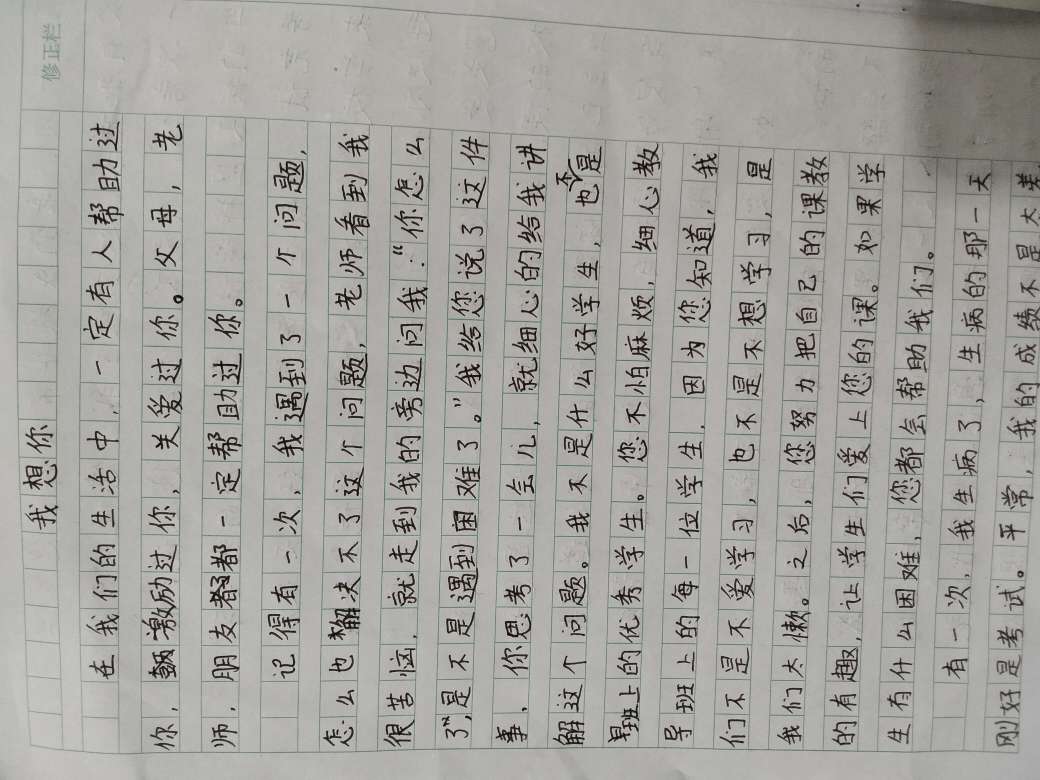 修正栏
我想你
在我们的生活中,一定有人帮助过
你,激励过你,关爱过你。父母,老
师,朋友都一定帮助过你。
记得有一次,我遇到了一个问题,
怎么也解决不了这个问题,老师看到我
很苦恼,就走到我的旁边问我:“你怎么
了”,是不是遇到困难了。”我给您说了这件
事,你思考了一会儿,就细心的给我讲
解这个问题。我不是什么好学生,也不是
班上的优秀学生。您不怕麻烦,细心教
导班上的每一位学生,因为您知道,我
们不是不爱学习,也不是不想学习,是
我们太懒。之后,您努力把自己的课教
的有趣,让学生们爱上您的课。如果学
生有什么困难,您都会帮助我们。
有一次,我生病了,生病的那一天
刚好是考试。平常,我的成绩不是太差